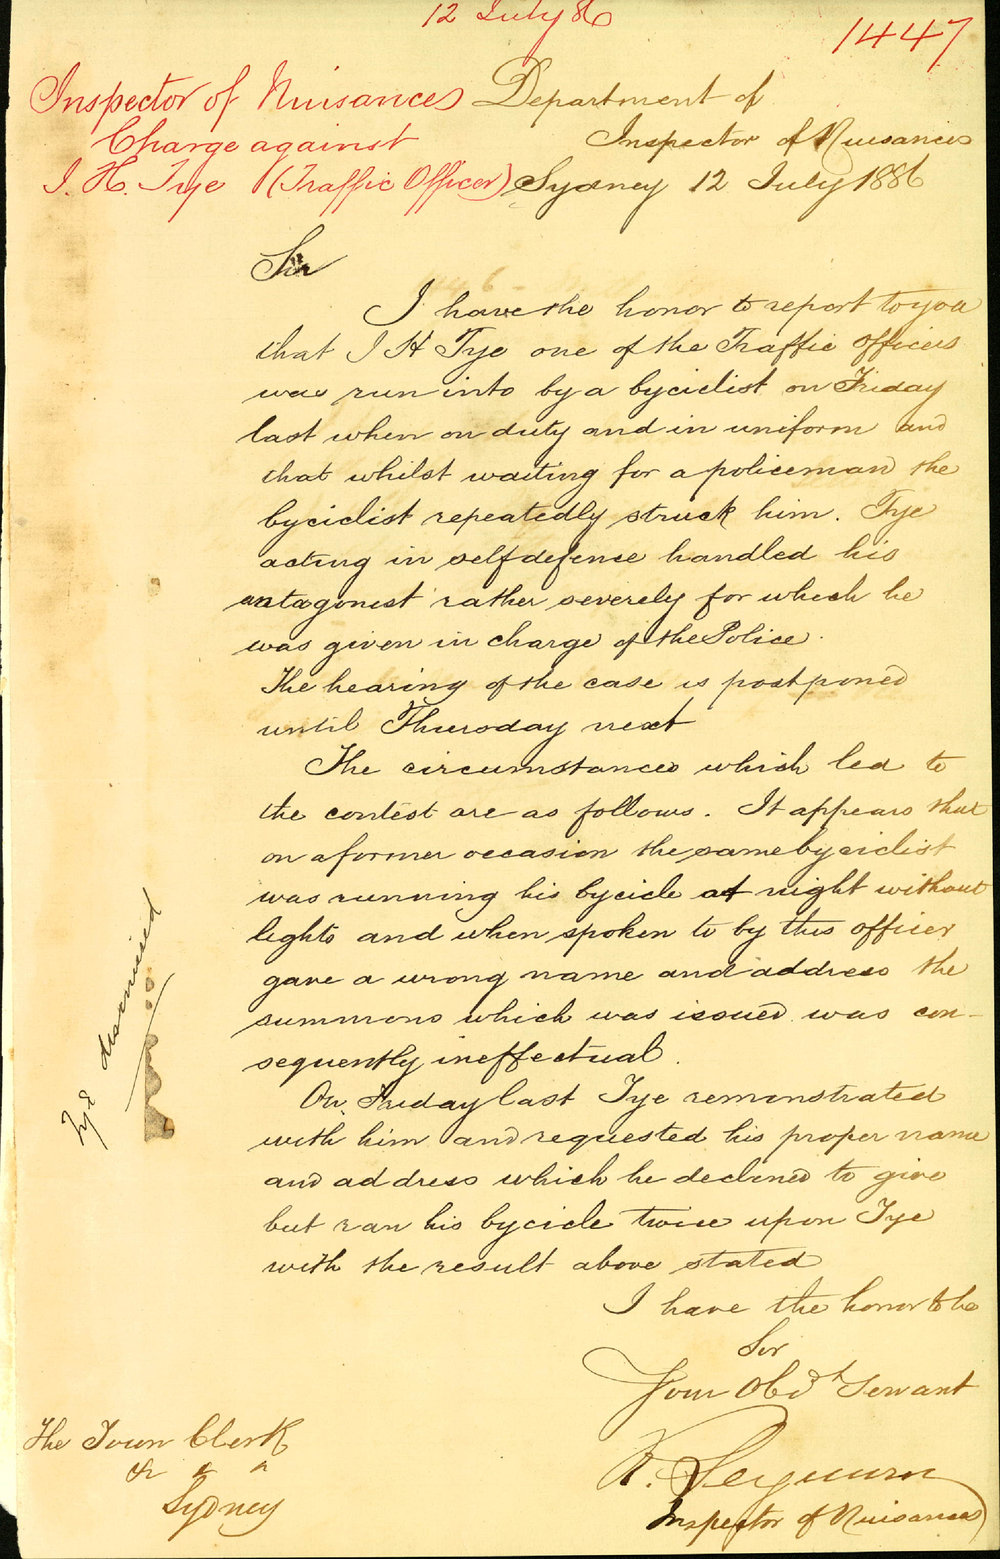 12 July 86
1447
Inspector of Nuisances
Charge against
J. H. Tye (Traffic Officer)
Department of
Inspector of Nuisances
Sydney 12 July 1886
Sir
I have the honor to report to you
that J H Tye one of the Traffic officers
was run into by a byciclist on Friday
last when on duty and in uniform and
that whilst waiting for a policeman the
byciclist repeatedly struck him. Tye
acting in self defence handled his
antagonist rather severely for which he
was given in charge of the Police.
The hearing of the case is postponed
until Thursday next
The circumstances which led to
the contest are as follows. It appears that
on a former occasion the same byciclist
was running his bycicle at night without
lights and when spoken to by this officer
gave a wrong name and address the
summons which was issued was con-
sequently ineffectual.
On Friday last Tye remonstrated
with him and requested his proper name
and address which he declined to give
but ran his bycicle twice upon Tye
with the result above stated
I have the honor to be
Sir
Your Obdt Servant
R. Seymour
Inspector of Nuisances
The Town Clerk
&c " "
Sydney
Tye dismissed